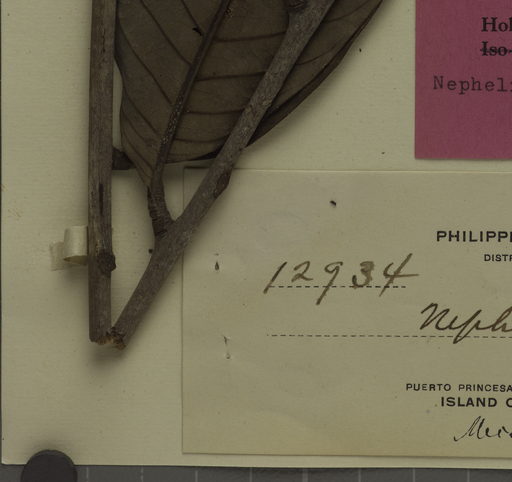 Hol
Iso
Nepheli
PHILIPPI
DISTR
12934
Neph
PUERTO PRINCESA
ISLAND O